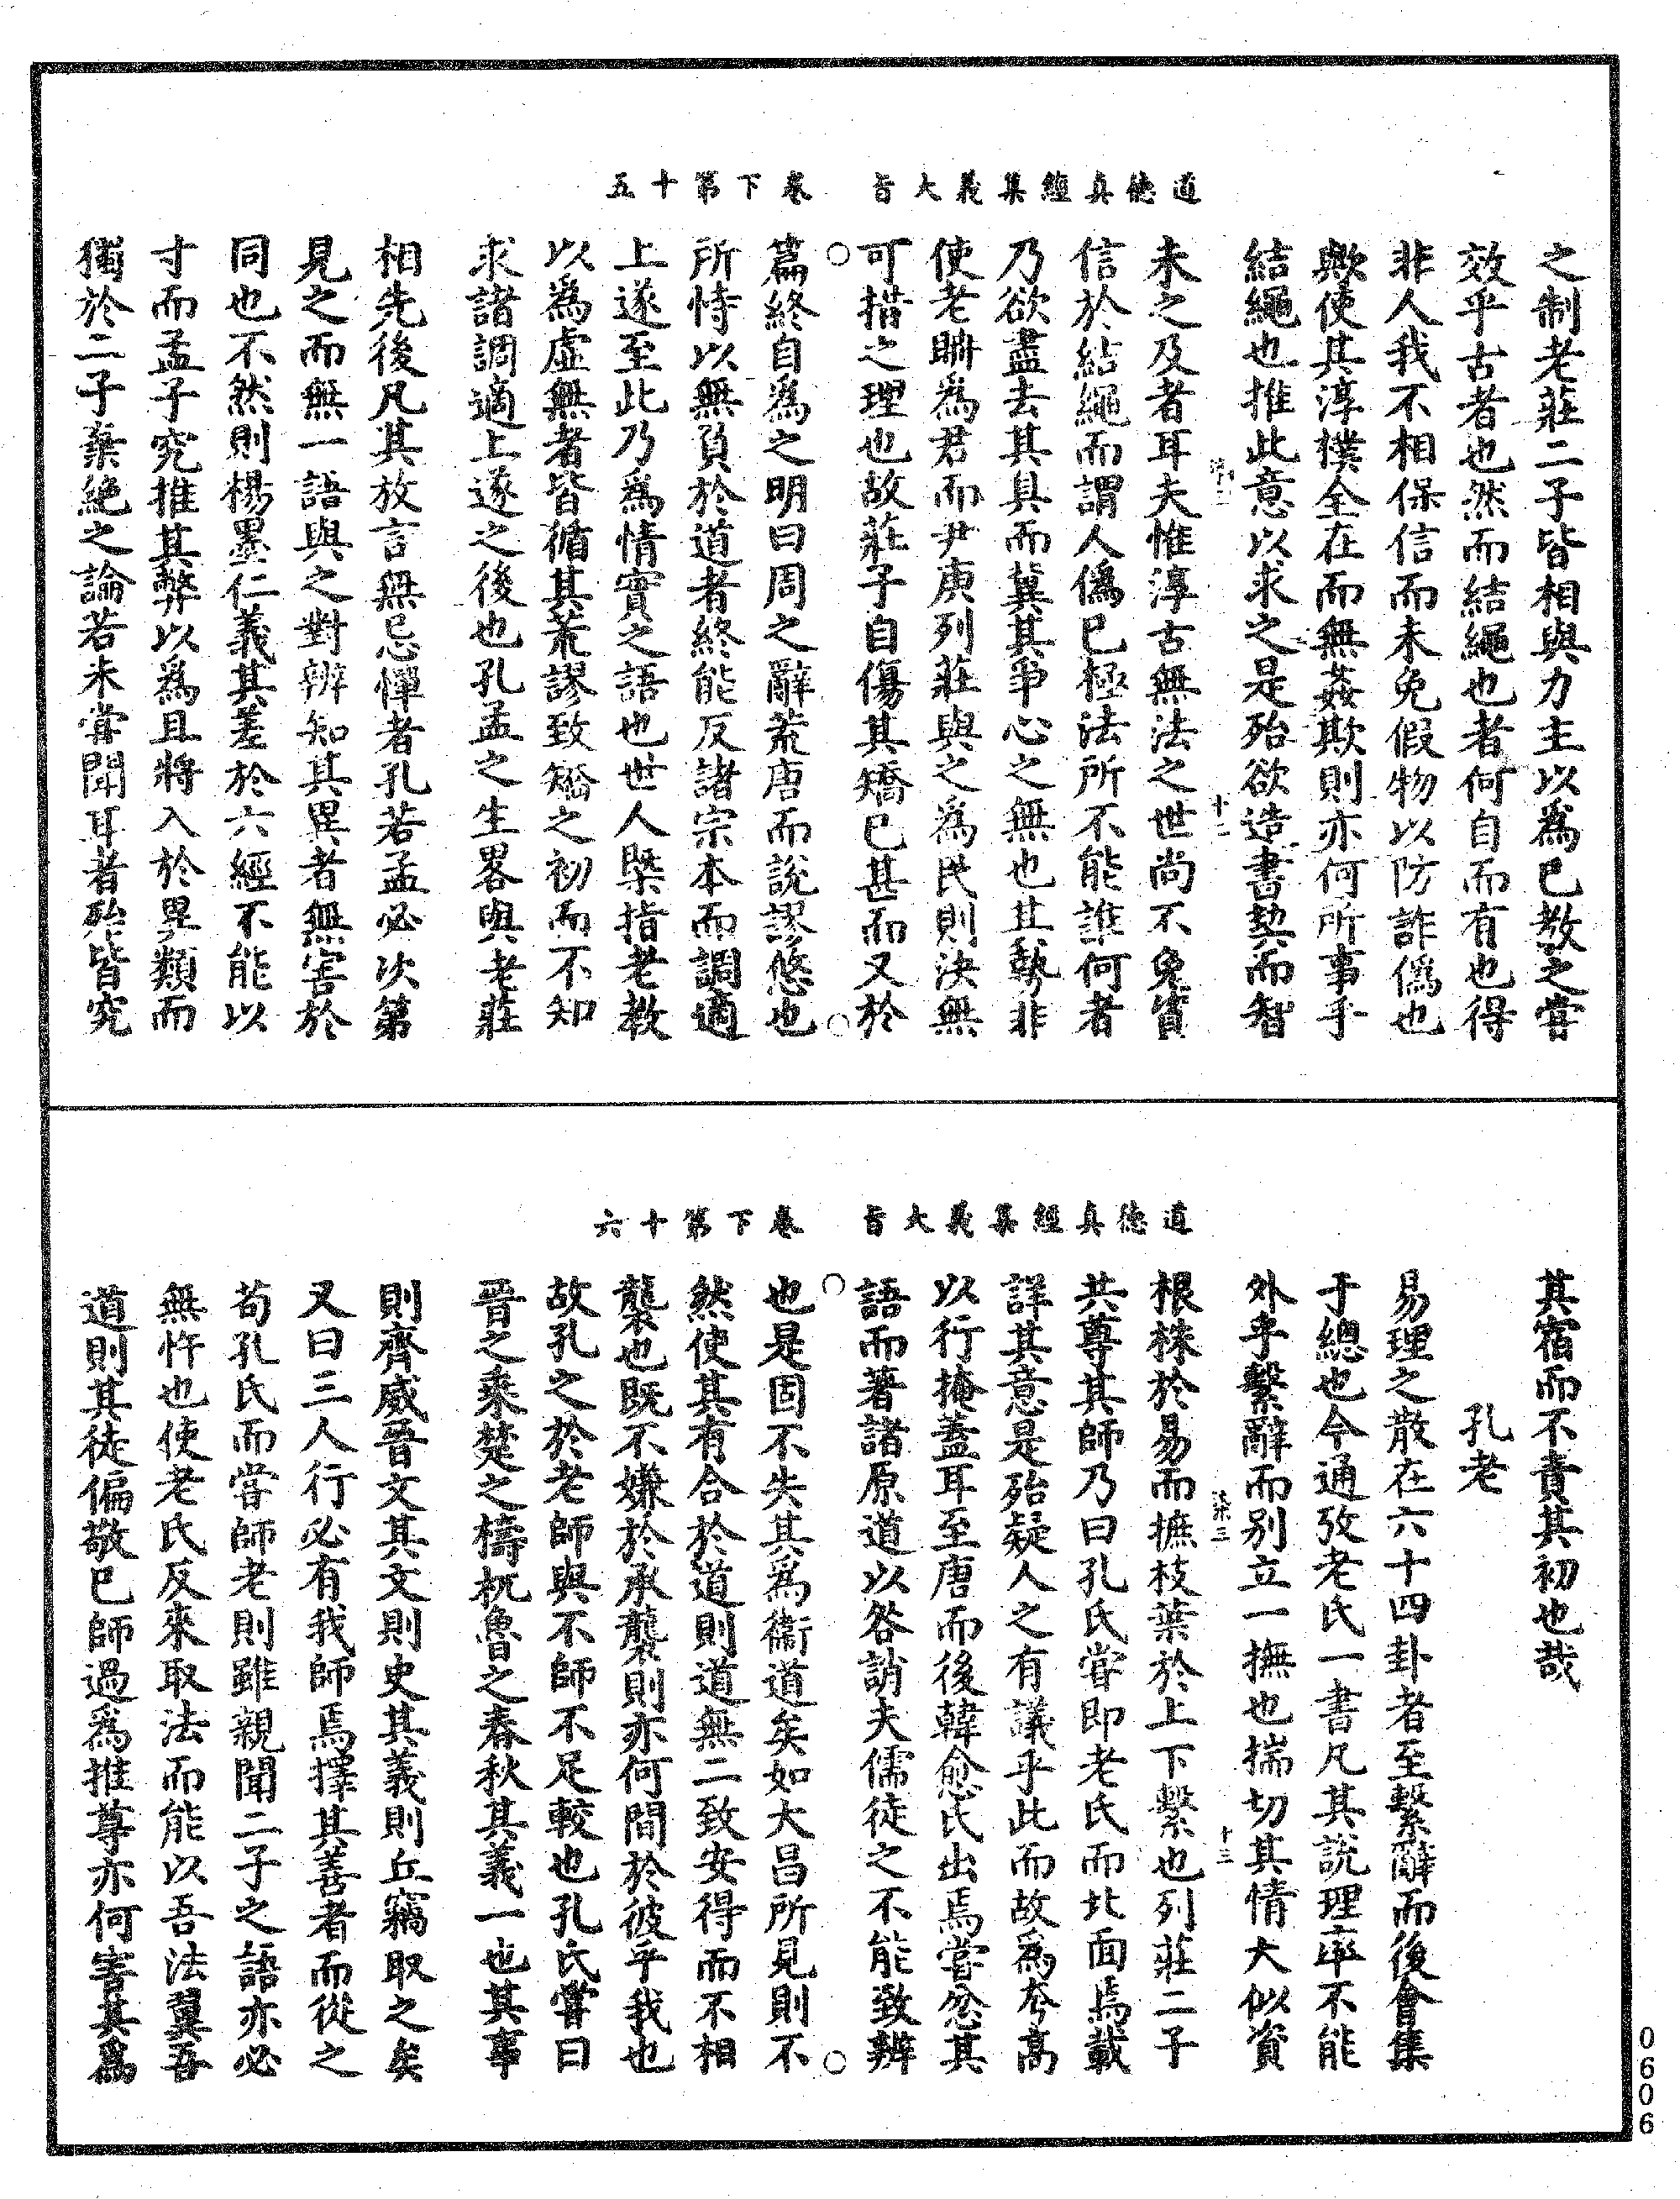 道德真經集義大旨　卷下第十五
之制老莊二子皆相與力主以爲已教之嘗
效乎古者也然而結繩也者何自而有也得
非人我不相保信而未免假物以防詐僞也
歟使其淳樸全在而無姦欺則亦何所事乎
結繩也推此意以求之是殆欲造書契而智
十二
未之及者耳夫惟淳古無法之世尚不免質
信於結繩而謂人僞已極法所不能誰何者
乃欲盡去其具而冀其爭心之無也其勢非
使老聃爲君而尹庚列莊與之爲民則決無
可措之理也故莊子自傷其矯已甚而又於
篇終自爲之明曰周之辭荒唐而說謬悠也
所恃以無負於道者終能反諸宗本而調適
上遂至此乃爲情實之語也世人槩指老教
以爲虛無者皆循其荒謬致矯之初而不知
求諸調適上遂之後也孔孟之生畧與老莊
相先後凡其放言無忌憚者孔若孟必次第
見之而無一語與之對辨知其異者無害於
同也不然則楊墨仁義其差於六經不能以
寸而孟子究推其弊以爲且將入於異類而
獨於二子棄絕之論若未嘗聞耳者殆皆究
道德真經集義大旨　卷下第十六
其宿而不責其初也哉
孔老
易理之散在六十四卦者至繫辭而後會集
于總也今通攷老氏一書凡其說理率不能
外乎繫辭而別立一撫也揣切其情大似資
染三
十三
根株於易而摭枝葉於上下繫也列莊二子
共尊其師乃曰孔氏嘗即老氏而北面焉載
詳其意是殆疑人之有議乎此而故爲夸高
以行掩蓋耳至唐而後韓愈氏出焉嘗忿其
語而著諸原道以咎誚夫儒徒之不能致辨
也是固不失其爲衞道矣如大昌所見則不
然使其有合於道則道無二致安得而不相
襲也既不嫌於承襲則亦何間於彼乎我也
故孔之於老師與不師不足較也孔氏嘗曰
晉之乘楚之檮杌魯之春秋其義一也其事
則齊威晉文其文則史其義則丘竊取之矣
又曰三人行必有我師焉擇其善者而從之
苟孔氏而嘗師老則雖親聞二子之語亦必
無忤也使老氏反來取法而能以吾法翼吾
道則其徒偏敬已師過爲推尊亦何害其爲
0606